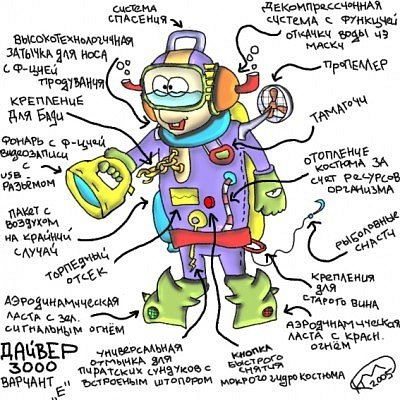 СИСТЕМА
СПАСЕНИЯ
ДЕКОМПРЕССИОННАЯ
СИСТЕМА С ФУНКЦИЕЙ
ОТКАЧКУ ВОДЫ ИЗ
МАСКИ
ВЫСОКОТЕХНОЛОГИЧНАЯ
ЗАТЫЧКА ДЛЯ НОСА
С Ф-ЦИЕЙ
ПРОДУВАНИЯ
ПРОПЕЛЛЕР
КРЕПЛЕНИЕ
ДЛЯ БАДИ
ТАМАГОЧИ
ФОНАРЬ С Ф-ЦИЕЙ
ВИДЕОЗАПИСИ
С
USB -
РАЗЪЕМОМ
ОТОПЛЕНИЕ
КОСТЮМА ЗА
СЧЕТ РЕСУРСОВ
ОРГАНИЗМА
ПАКЕТ С
ВОЗДУХОМ
НА КРАЙНИЙ
СЛУЧАЙ
РЫБОЛОВНЫЕ
СНАСТИ
ТОРПЕДНЫЙ
ОТСЕК
КРЕПЛЕНИЯ
ДЛЯ
СТАРОГО ВИНА
АЭРОДИНАМИЧЕСКАЯ
ЛАСТА С ЗЕЛ.
СИГНАЛЬНЫМ ОГНЁМ
АЭРОДИНАМИЧЕСКАЯ
ЛАСТА С КРАСН.
ОГНЁМ
ДАЙВЕР
3000
ВАРИАНТ "Е"
УНИВЕРСАЛЬНАЯ
ОТМЫЧКА ДЛЯ
ПИРАТСКИХ СУНДУКОВ С
ВСТРОЕНЫМ ШТОПОРОМ
КНОПКА
БЫСТРОГО
СНЯТИЯ
МОКРОГО ГИДРОКОСТЮМА
2005